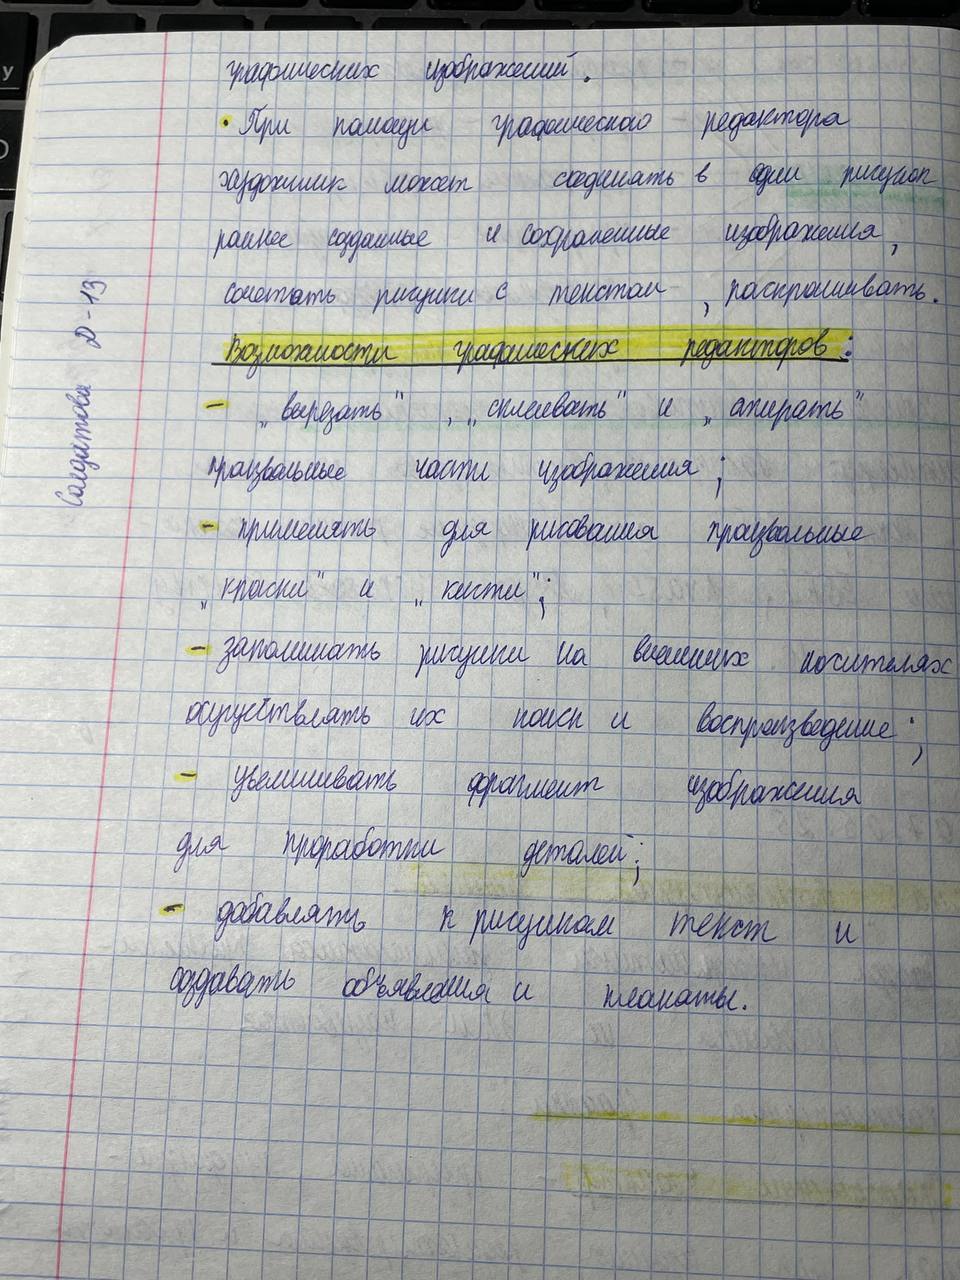 графических изображений.
• При помощи графического редактора
художник может соединать в один рисунок
ранее созданные и сохраненные изображения,
сочетать рисунки с текстом, раскрашивать.
Возможности графических редакторов:
- „вырезать", „склеивать" и „стирать"
произвольные части изображения;
- применять для рисования произвольные
„краски" и „кисти";
- запоминать рисунки на внешних носителях
осуществлять их поиск и воспроизведение;
- увеличивать фрагмент изображения
для проработки деталей;
- добавлять к рисункам текст и
создавать объявления и плакаты.
Солдатова Д-13